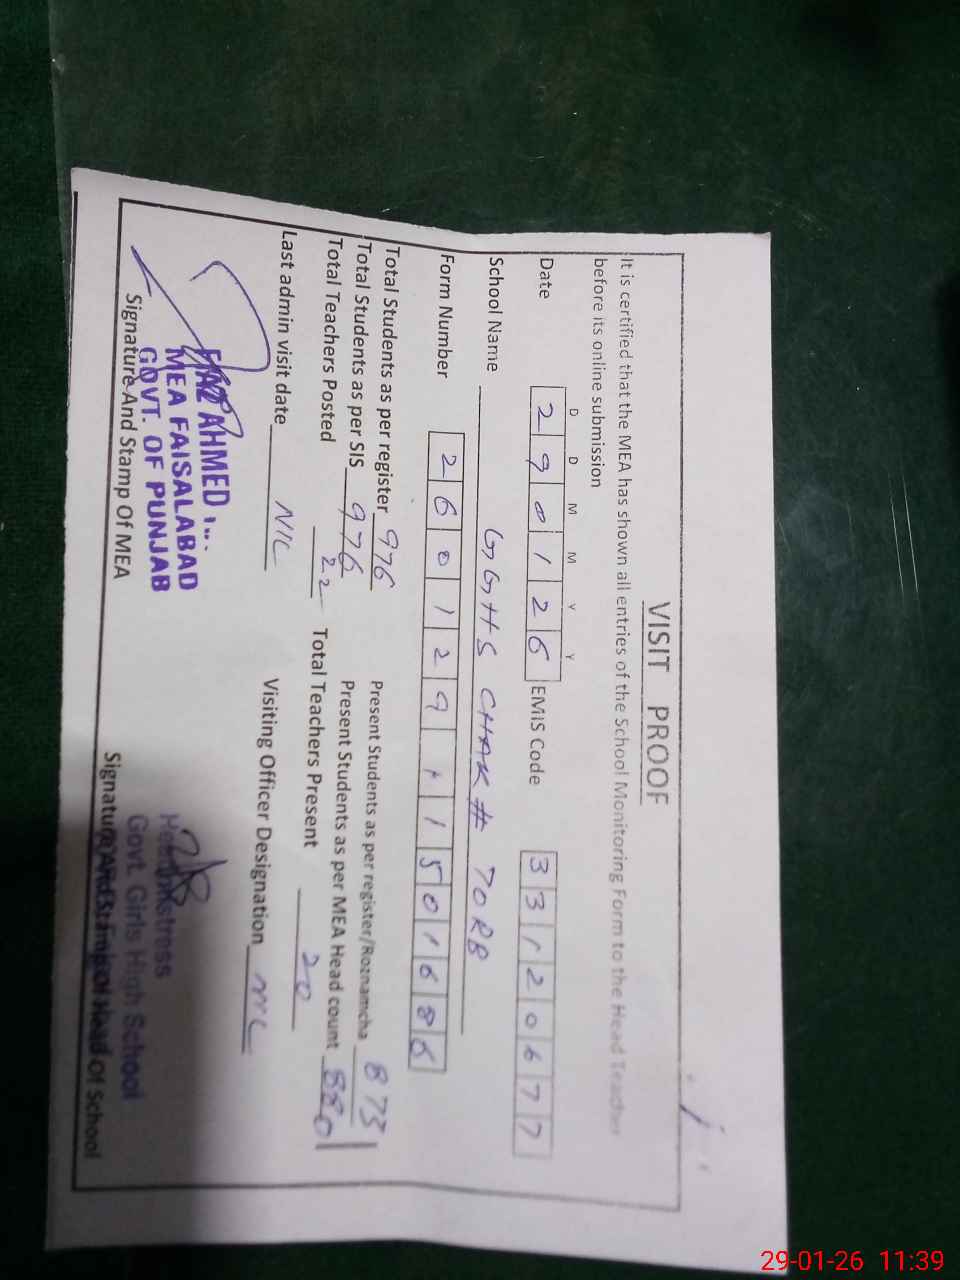 VISIT PROOF
It is certified that the MEA has shown all entries of the School Monitoring Form to the Head Teacher
before its online submission
D D M M Y Y
Date 2 9 0 1 2 6 EMIS Code 3 3 1 2 0 6 7 7
School Name GGHS CHAK # 70RB
Form Number 2 6 0 1 2 9 1 1 5 0 1 6 8 6
Total Students as per register 976 Present Students as per register/Roznamcha 873
Total Students as per SIS 976 Present Students as per MEA Head count 880
Total Teachers Posted 22 Total Teachers Present 20
Last admin visit date NIL Visiting Officer Designation NIL
AHMED
MEA FAISALABAD
GOVT. OF PUNJAB
Signature And Stamp Of MEA
Headmistress
Govt. Girls High School
Signature And Stamp Of Head Of School
29-01-26 11:39